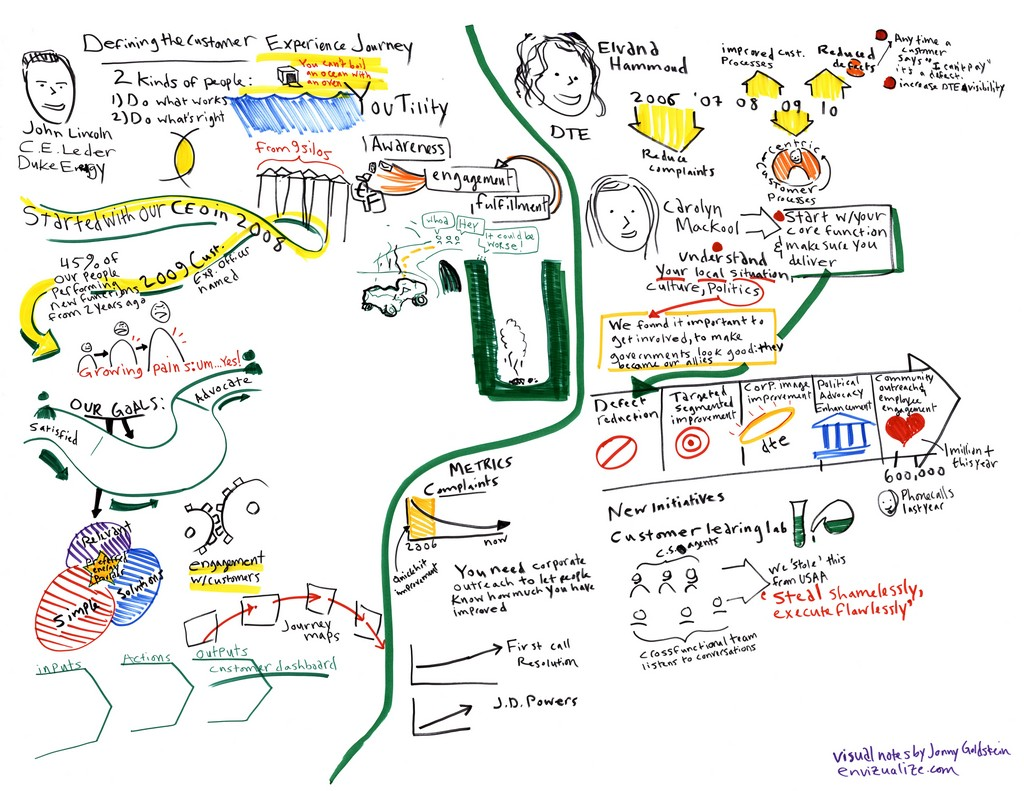 Defining the Customer Experience Journey
2 Kinds of people:
1) Do what works
2) Do what's right
You can't boil
an ocean with
an oven
YouTility
John Lincoln
C.E. Leder
Duke Energy
From 9 silos
Awareness
engagement
fulfillment
Started with our CEO in 2008
2009 Cust.
Exp. officer
named
45% of
our People
Performing
new functions
from 2 years ago
Growing pains: um...Yes!
whoa
Hey
it could be
worse!
OUR GOALS:
Satisfied
Advocate
Relevant
Preferred
energy
Provider
Simple
Solutions
engagement
w/customers
Journey
maps
inputs
Actions
outputs
Customer dashboard
METRICS
Complaints
2006
now
improvement
You need corporate
outreach to let people
Know how much you have
improved
First call
Resolution
J.D. Powers
Elvana
Hammoud
DTE
improved cust.
Processes
Reduced
defects
Any time a
customer
says "I can't pay"
it's a defect.
increase DTE visibility
2006 '07 08 09 10
Reduce
complaints
centric
Customer
Processes
Carolyn
Mackool
Start w/your
core function
& make sure you
deliver
understand
Your local situation,
Culture, Politics
We found it important to
get involved, to make
governments look good: they
became our allies
Defect
reduction
Targeted
segmented
improvement
Corp. image
improvement
dte
Political
Advocacy
Enhancement
Community
outreach,
employee
engagement
1 million +
this year
600,000
Phone calls
last year
New Initiatives
Customer learing lab
C.S. agents
we 'stole' this
from USAA
"Steal shamelessly,
execute flawlessly"
crossfunctional team
listens to conversations
visual notes by Jonny Goldstein
envizualize.com